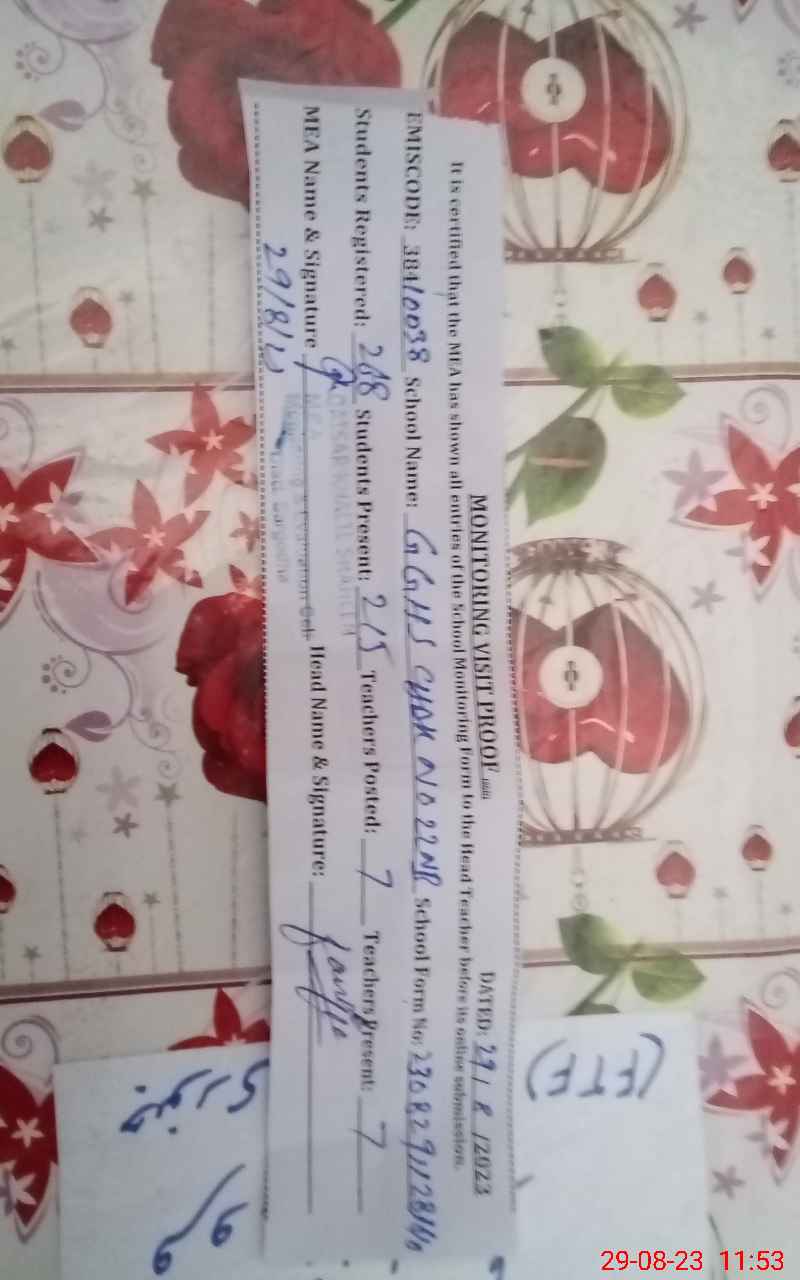 MONITORING VISIT PROOF DATED: 29/8/2023
It is certified that the MEA has shown all entries of the School Monitoring Form to the Head Teacher before its online submission.
EMISCODE: 38410038 School Name: GGHS CHAK NO 22NB School Form No:
Students Registered: 268 Students Present: 215 Teachers Posted: 7 Teachers Present: 7
MEA Name & Signature Head Name & Signature:
MEA
Sargodha
29/8/23
(FTF)
جنوری
29-08-23 11:53